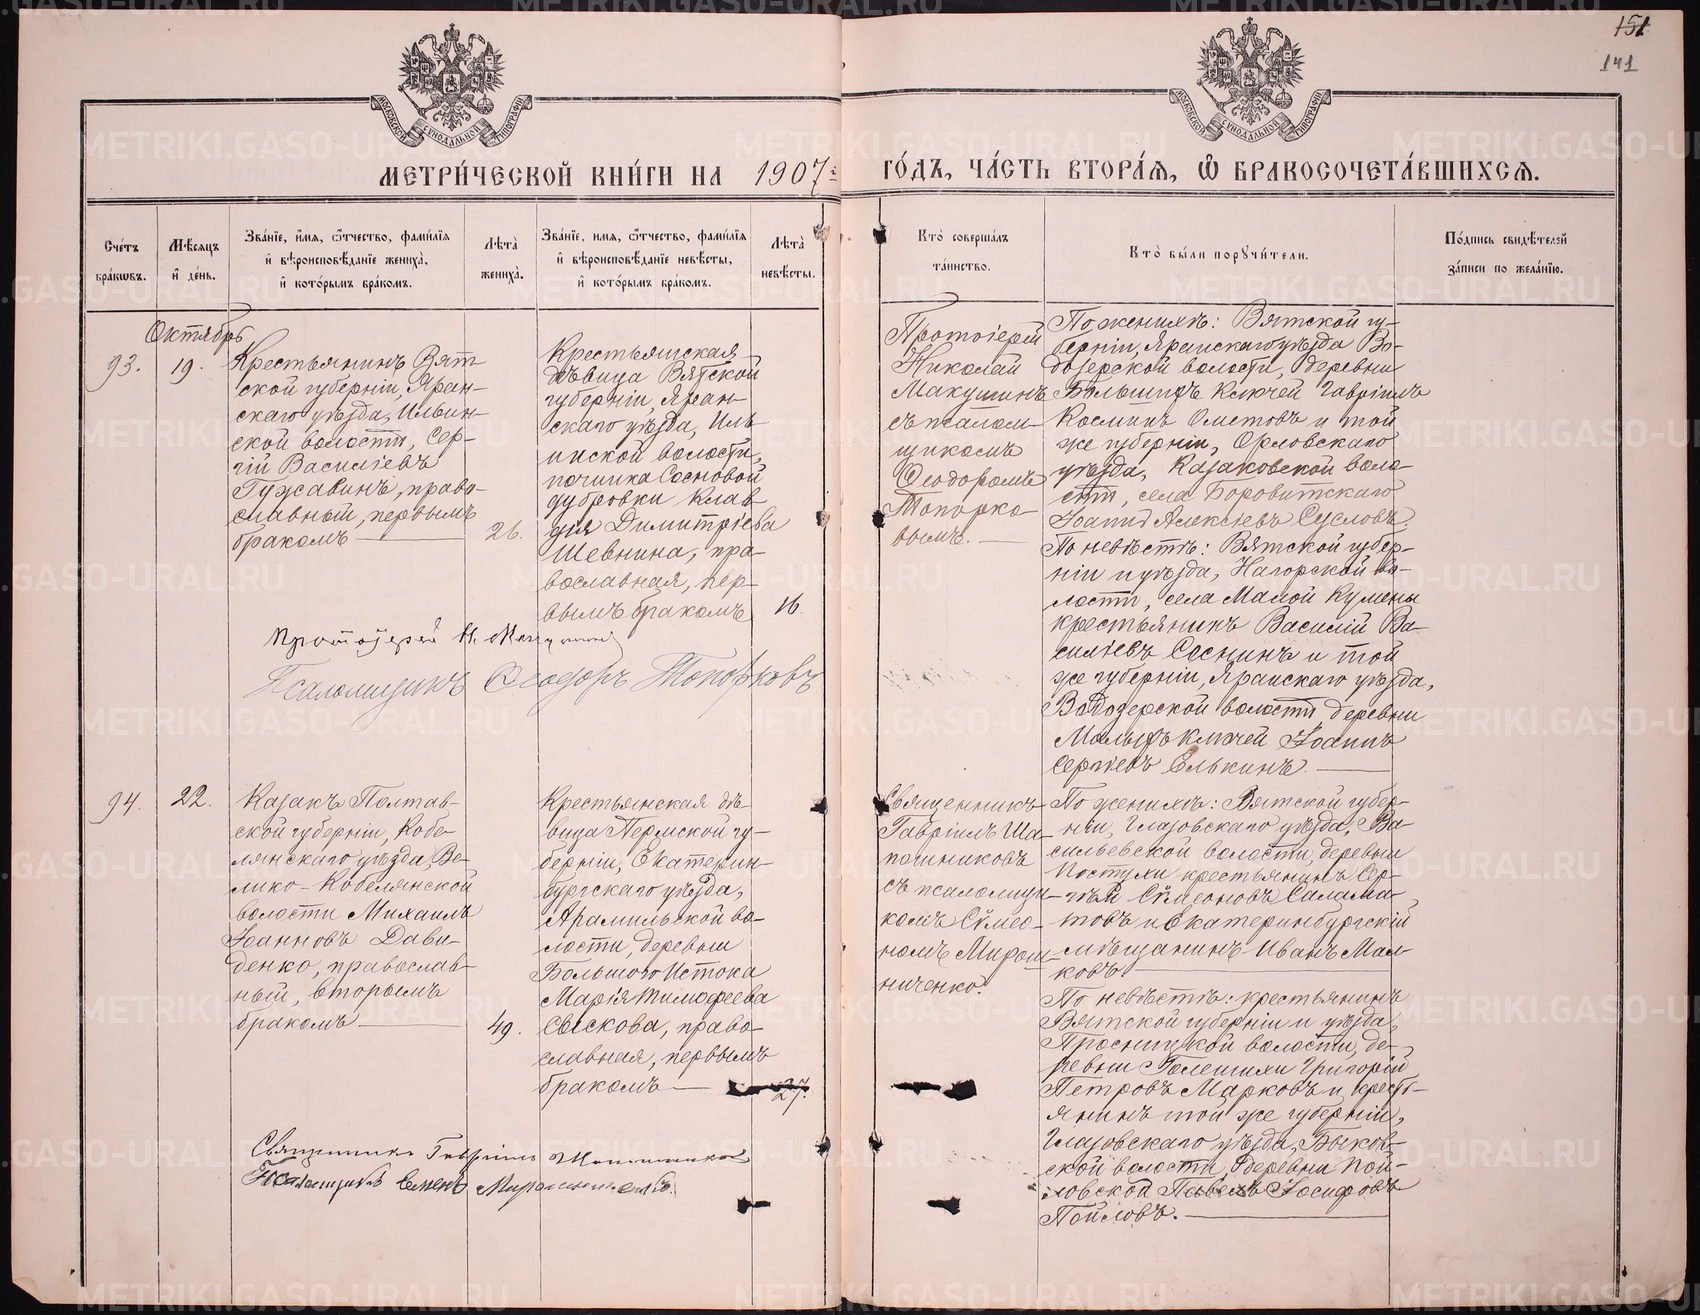 151
141
МОСКОВСКОЙ СѴНОДАЛЬНОЙ ТИПОГРАФІИ
МОСКОВСКОЙ СѴНОДАЛЬНОЙ ТИПОГРАФІИ
МЕТРИ́ЧЕСКОЙ КНИ́ГИ НА 1907 й
ГО́ДЪ, ЧА́СТЬ ВТОРА́Я, Ѽ БРАКОСОЧЕТА́ВШИХСЯ.
Сче́тъ
бра́кѡвъ.
Мѣ́сяцъ
и҆ де́нь.
Зва́нїе, и҆́мя, ѻ҆́тчество, фами́лїя
и҆ вѣроисповѣ́данїе жениха̀,
и҆ кото́рымъ бра́комъ.
Лѣ́та̀
жениха̀.
Зва́нїе, имя, ѻ҆́тчество, фами́лїя
и҆ вѣроисповѣ́данїе невѣ́сты,
и҆ кото́рымъ бра́комъ.
Лѣ́та̀
невѣ́сты.
Кто̀ соверша́лъ
та́инство.
Кто̀ бы́ли порꙋчи́тели.
По́дпись свидѣ́телей
за́писи по жела́нїю.
Октябрь
93.
19.
Крестьянинъ Вят-
ской губерніи, Яран-
скаго уѣзда, Ильин-
ской волости, Сер-
гій Василіевъ
Гужавинъ, право-
славный, первымъ
бракомъ
26.
Крестьянская
дѣвица Вятской
губерніи, Яран-
скаго уѣзда, Иль-
инской волости,
починка Сосновой
дубровки Клав
дія Димитріева
Шевнина, пра-
вославная, пер-
вымъ бракомъ
16.
Протоіерей Н. Макушинъ
Псаломщикъ Ѳеодоръ Топорковъ
Протоіерей
Николай
Макушинъ
съ псалом-
щикомъ
Ѳеодоромъ
Топорко-
вымъ.
По женихѣ: Вятской гу-
берніи, Яранскаго уѣзда Во-
дозерской волости, деревни
Большихъ Ключей Гавріилъ
Косминъ Ометовъ и той
же губерніи, Орловскаго
уѣзда, Казаковской воло-
сти, села Боровитскаго
Іоаннъ Алексіевъ Сусловъ.
По невѣстѣ: Вятской губер-
ніи и уѣзда, Нагорской во-
лости, села Малой Кумены
крестьянинъ Василій Ва-
силіевъ Соснинъ и той
же губерніи, Яранскаго уѣзда,
Водозерской волости, деревни
Малыхъ ключей Іоаннъ
Сергіевъ Елькинъ.
94.
22.
Казакъ Полтав-
ской губерніи, Кобе-
лянскаго уѣзда, Ве-
лико-Кобелянской
волости Михаилъ
Іоанновъ Дави-
денко, православ-
ный, вторымъ
бракомъ
49.
Крестьянская дѣ-
вица Пермской гу-
берніи, Екатерин-
бургскаго уѣзда,
Арамильской во-
лости, деревни
Большого Истока
Марія Тимофеева
Свіскова, право-
славная, первымъ
бракомъ
27.
Священникъ Гавріилъ Шапошниковъ
Псаломщикъ Симеонъ Мирошниченко.
Священникъ
Гавріилъ Ша-
пошниковъ
съ псаломщи-
комъ Сѵмео-
номъ Мирош-
ниченко.
По женихѣ: Вятской губер-
ніи, Глазовскаго уѣзда, Ва-
сильевской волости, деревни
Постухи крестьянинъ Сер-
гѣй Сѵмеоновъ Салама-
товъ и Екатеринбургскій
мѣщанинъ Иванъ Мал-
ковъ.
По невѣстѣ: крестьянинъ
Вятской губерніи и уѣзда,
Просницкой волости, де-
ревни Голешихи Григорій
Петровъ Марковъ и кресть-
янинъ той же губерніи,
Глазовскаго уѣзда, Быков-
ской волости, деревни Пой-
ловской Павелъ Іосифовъ
Пойловъ.
METRIKI.GASO-URAL.RU